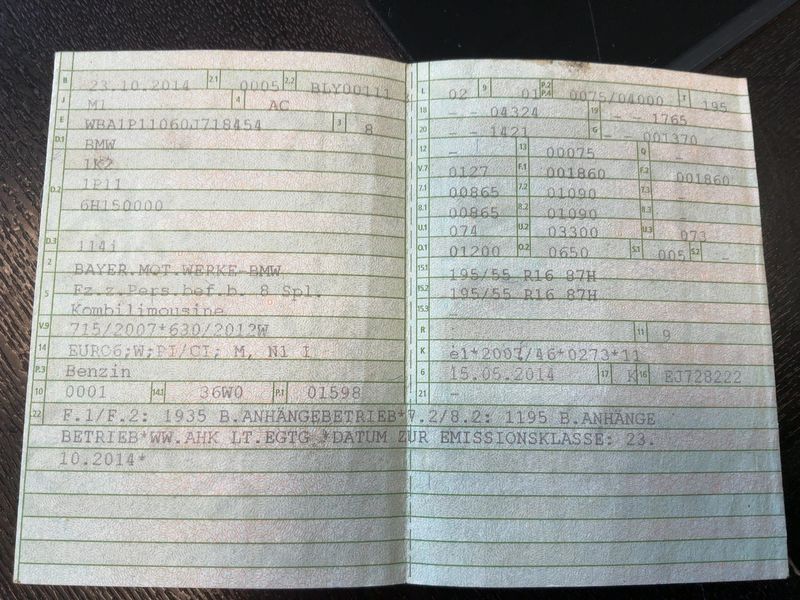 B 23.10.2014 2.1 0005 2.2 BLY00111
J M1 4 AC
E WBA1P11060J718454 3 8
D.1 BMW
1K2
D.2 1P11
6H150000
D.3 114i
2 BAYER.MOT.WERKE-BMW
5 Fz.z.Pers.bef.b. 8 Spl.
Kombilimousine
V.9 715/2007*630/2012W
14 EURO6;W;PI/CI; M, N1 I
P.3 Benzin
10 0001 14.1 36W0 P.1 01598
L 02 9 01 P.2 P.4 0075/04000 T 195
18 - - 04324 19 - - 1765
20 - - 1421 G - - 001370
12 - 13 00075 Q -
V.7 0127 F.1 001860 F.2 001860
7.1 00865 7.2 01090 7.3 -
8.1 00865 8.2 01090 8.3 -
U.1 074 U.2 03300 U.3 073
O.1 01200 O.2 0650 S.1 005 S.2 -
15.1 195/55 R16 87H
15.2 195/55 R16 87H
15.3 -
R - 11 9
K e1*2007/46*0273*11
6 15.05.2014 17 K 16 EJ728222
21 -
22 F.1/F.2: 1935 B.ANHÄNGEBETRIEB*7.2/8.2: 1195 B.ANHÄNGE
BETRIEB*WW.AHK LT.EGTG *DATUM ZUR EMISSIONSKLASSE: 23.
10.2014*